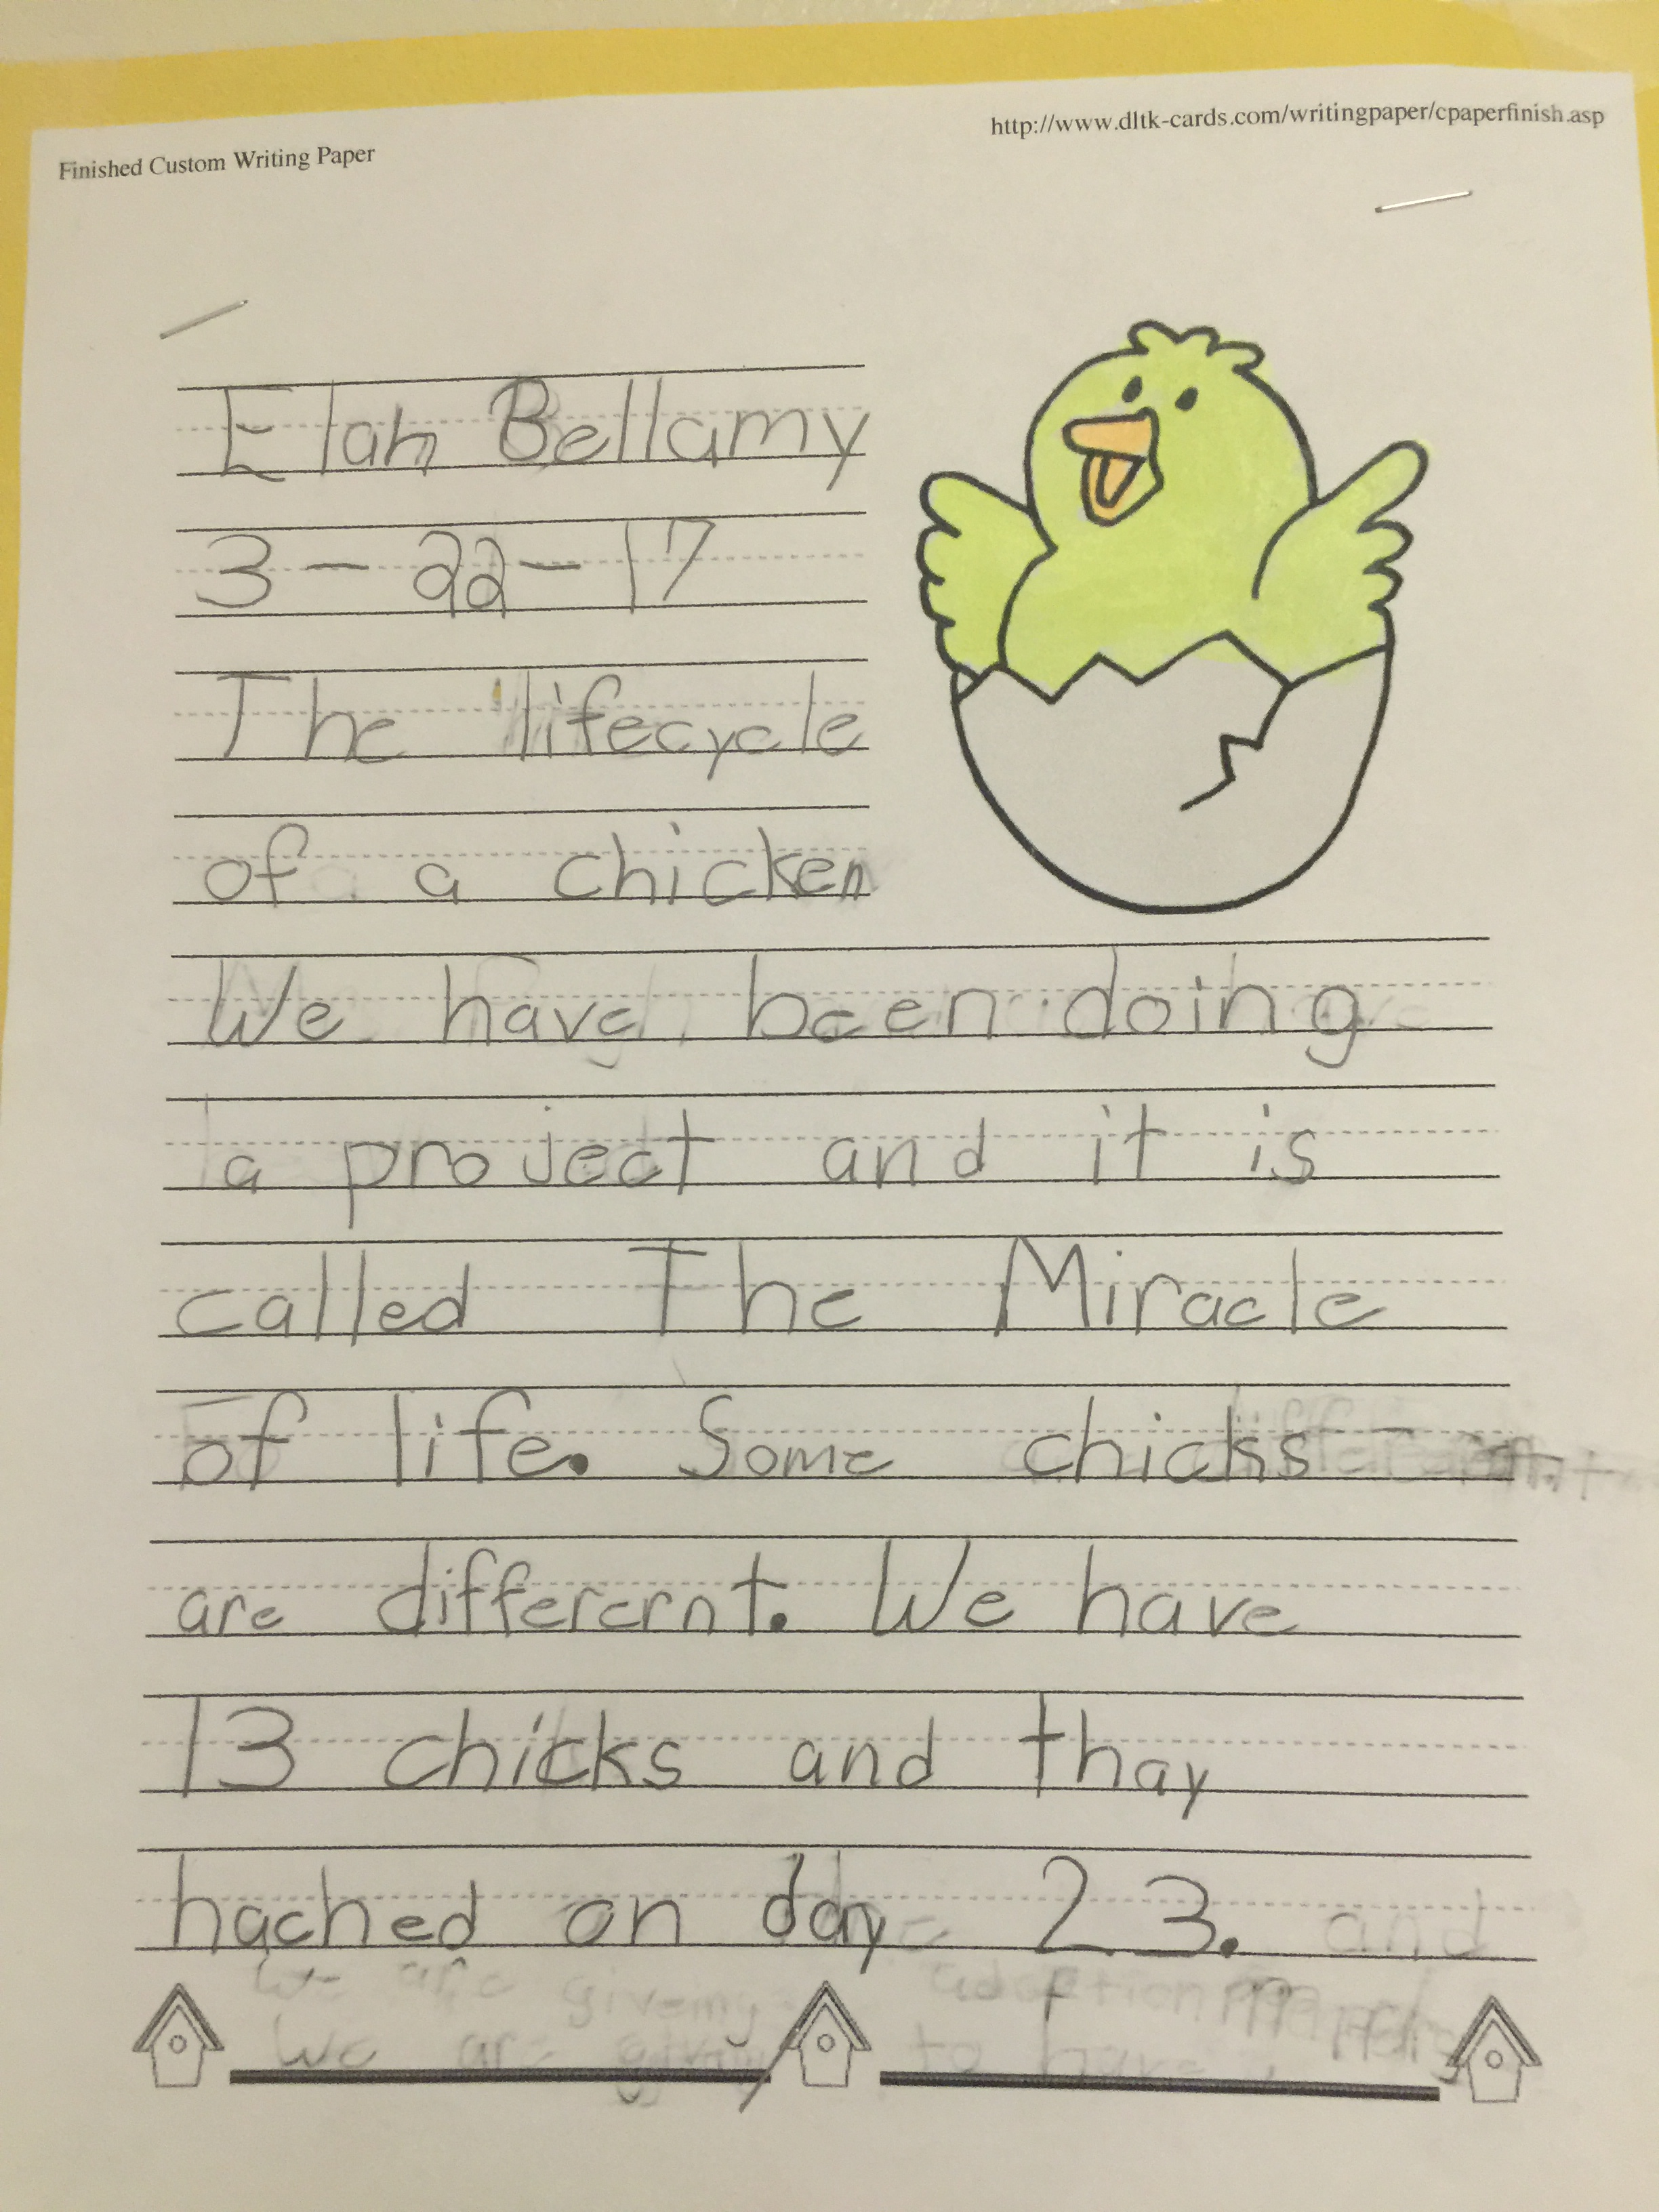 Finished Custom Writing Paper
http://www.dltk-cards.com/writingpaper/cpaperfinish.asp
Elah Bellamy
3-22-17
The lifecycle
of a chicken
We have been doing
a project and it is
called The Miracle
of life. Some chicks
are differernt. We have
13 chicks and thay
hached on day 23. and
we are giveing adoption
we are giving to have